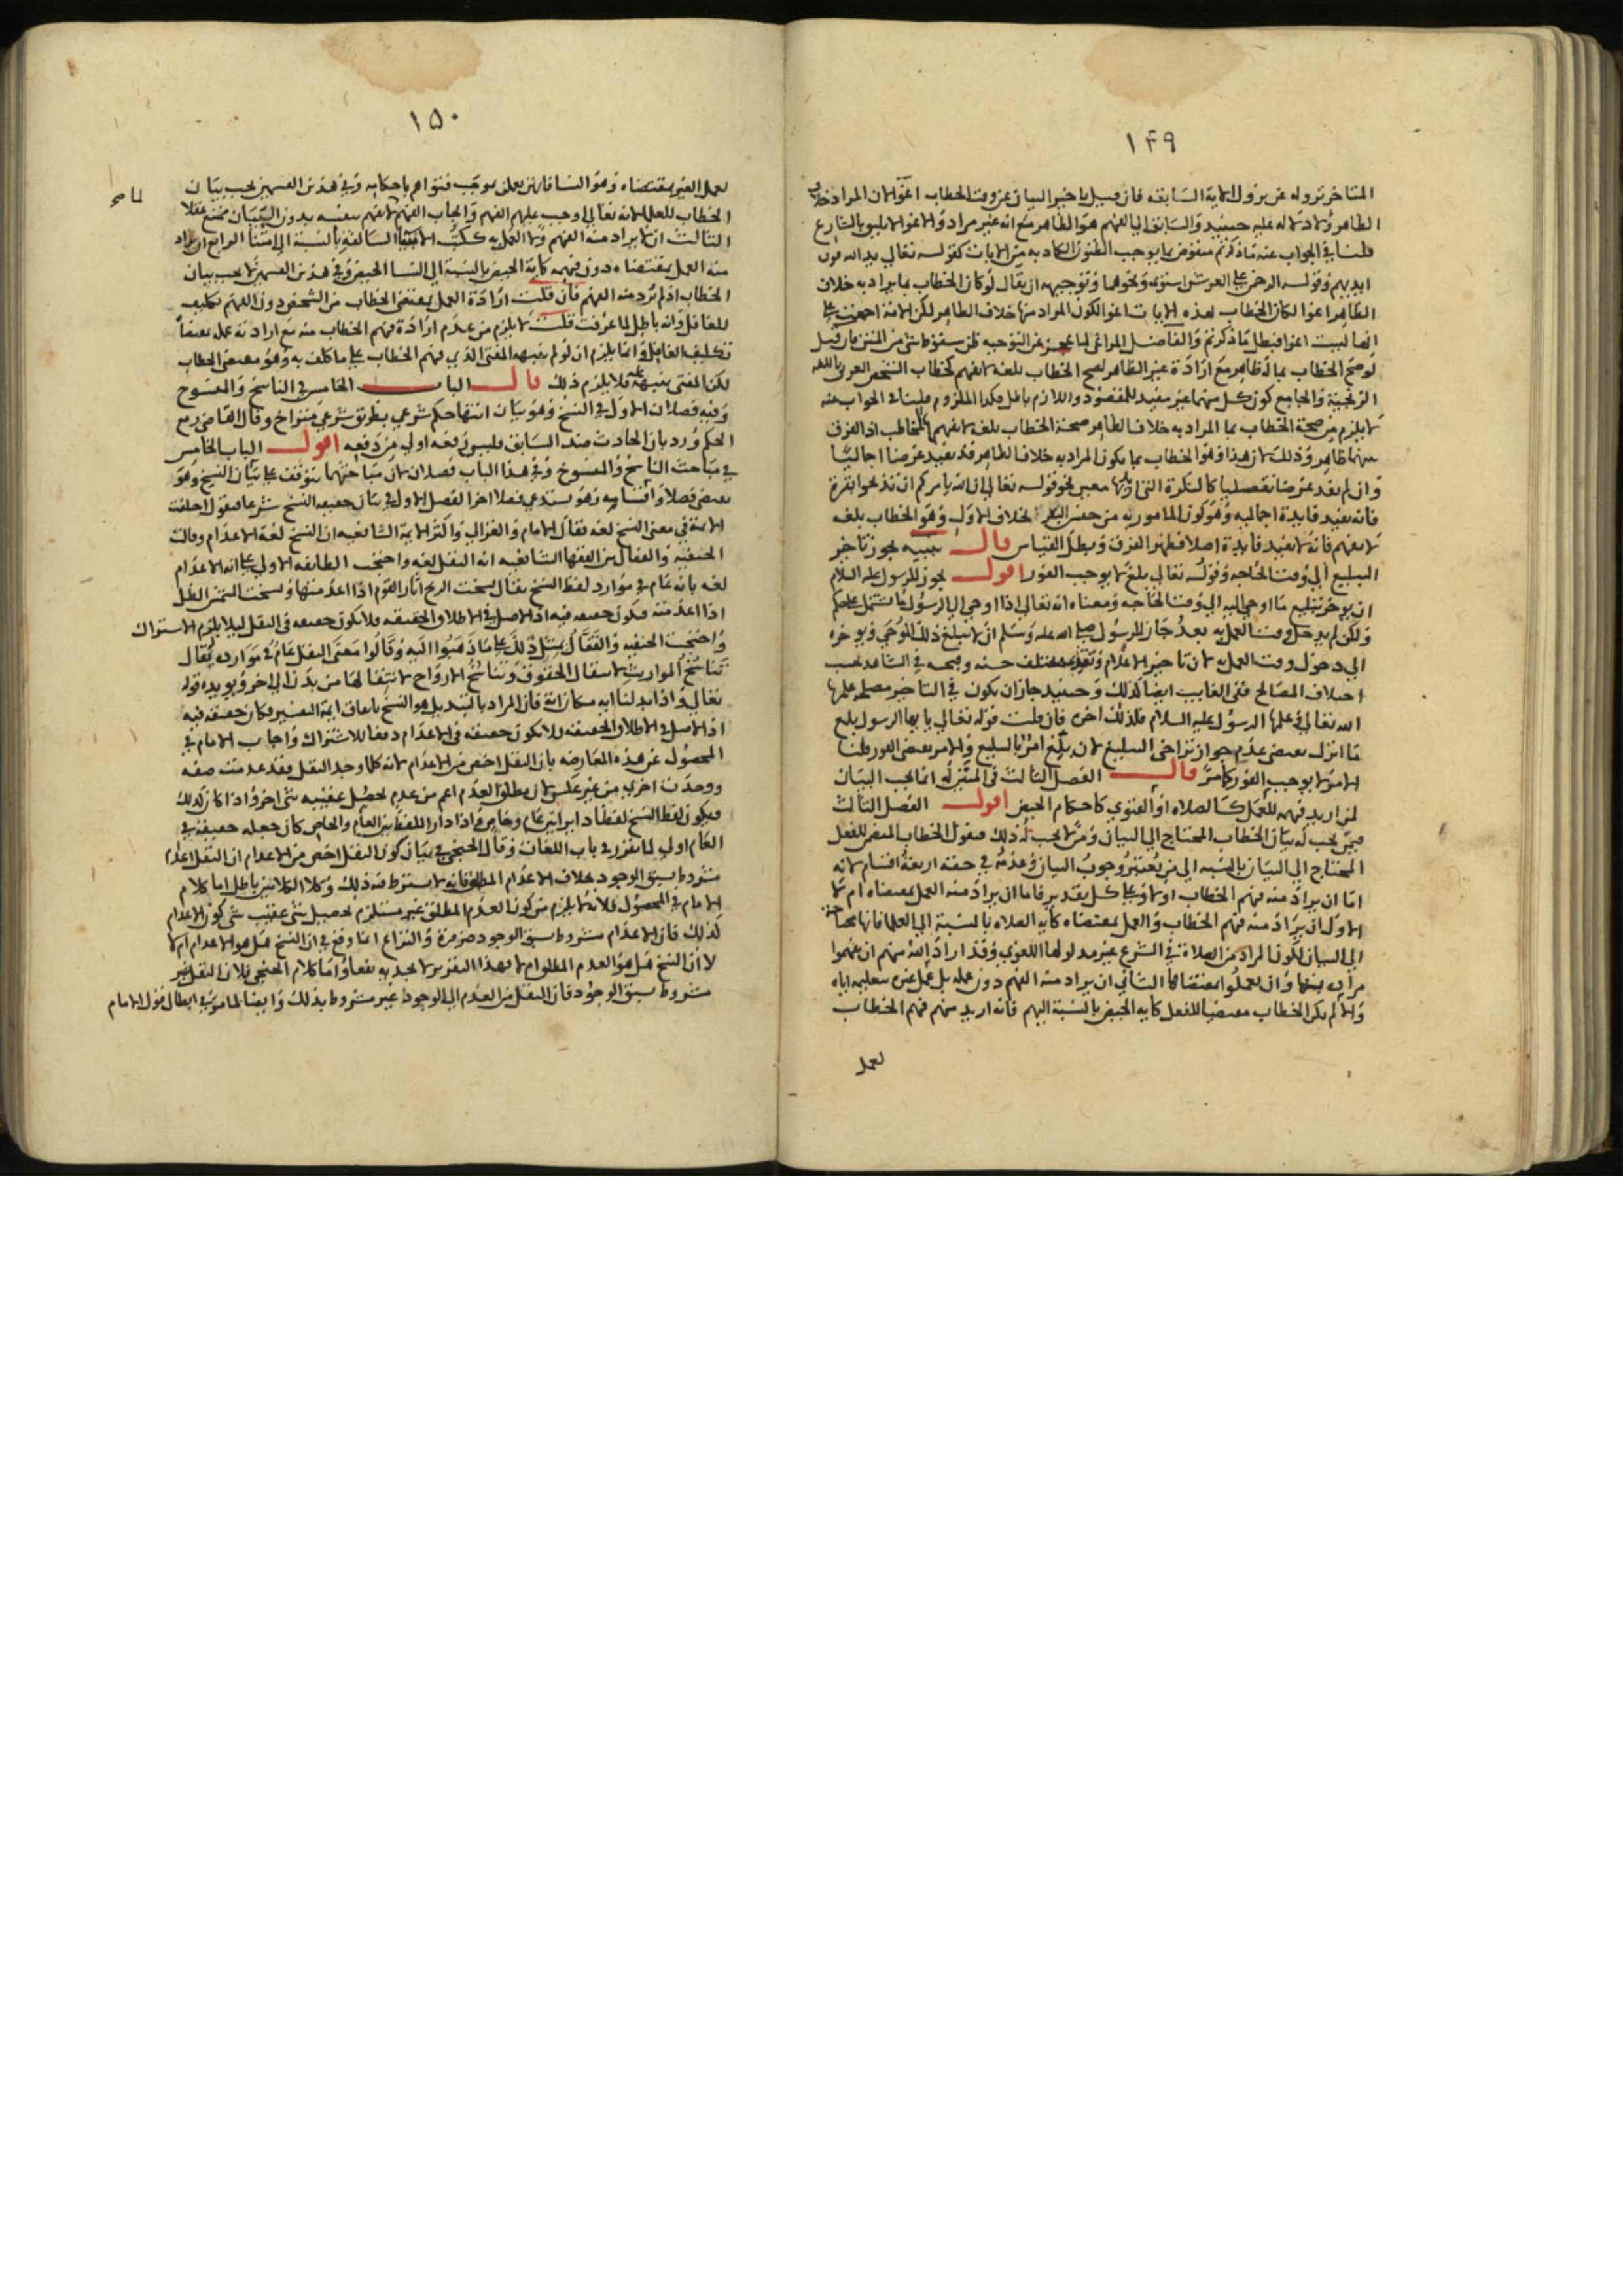 ١٤٩
المتاخر نزوله عن نزول الآية السابقه فان قيل تاخير البيان عن وقت الخطاب اغوا لان المراد خلاف
الظاهر ولا دلالة عليه حينيد والسابق الى الفهم هو الظاهر مع انه غير مراد والاغوا لا يليق بالشارع
قلنا في الجواب عنه ما ذكرتم منقوض بما يوجب الظنون الكاذبه من الايات كقوله تعالى يد الله فوق
ايديهم وقوله الرحمن على العرش استوى ونحوهما وتوجيهه ان يقال لو كان الخطاب بما يراد به خلاف
الظاهر اغوا لكان الخطاب بهذه الايات اغوا لكون المراد منها خلاف الظاهر لكن الامة اجمعت على
انها ليست اغوا فبطل ما ذكرتم والفاضل المراغى لما عجز عن التوجيه ظن سقوط شى من المتن فان قيل
لو صح الخطاب بما له ظاهر مع ارادة غير الظاهر لصح الخطاب بلغة لا تفهم كخطاب الشخص العربى باللغه
الزنجية والجامع كون كل منهما غير مفيد للمقصود واللازم باطل فكذا الملزوم قلنا في الجواب عنه
لا يلزم من صحة الخطاب بما المراد به خلاف الظاهر صحة الخطاب بلغة لا يفهمها المخاطب اذ الفرق
بينهما ظاهر وذلك لان هذا وهو الخطاب بما يكون المراد به خلاف الظاهر قد يفيد غرضا اجماليا
وان لم يفد غرضا تفصيليا كالنكرة التى اريد بها معين نحو قوله تعالى ان الله يامركم ان تذبحوا بقرة
فانه يفيد فايدة اجماليه وهو كون المامور به من جنس البقر بخلاف الاول وهو الخطاب بلغه
لا تفهم فانه لا يفيد فايدة اصلا فظهر الفرق وبطل القياس قال تنبيه يجوز تاخير
التبليغ الى وقت الحاجه وقوله تعالى بلغ لا يوجب الفور اقول يجوز للرسول عليه السلام
ان يوخر تبليغ ما اوحى اليه الى وقت الحاجه ومعناه انه تعالى اذا اوحى الى الرسول ما يشتمل على حكم
ولكن لم يدخل وقت العمل به بعد جاز للرسول صلى الله عليه وسلم ان لا يبلغ ذلك الوحى ويوخره
الى دخول وقت العمل به لان تاخير الاعلام وتقديمه يختلف حسنه وقبحه في الشاهد بحسب
اختلاف المصالح ففى الغايب ايضا كذلك وحينيد جاز ان يكون في التاخير مصلحة علمها
الله تعالى وعلمها الرسول عليه السلام فلذلك اخره فان قلت قوله تعالى يا ايها الرسول بلغ
ما انزل يقتضى عدم جواز تراخى التبليغ لان بلغ امر بالتبليغ والامر يقتضى الفور قلنا
الامر لا يوجب الفور كما مر قال الفصل الثالث في المبين له انما يجب البيان
لمن اريد فهمه للعمل كالصلاه او الفتوى كاحكام الحيض اقول الفصل الثالث
فيمن يجب له بيان الخطاب المحتاج الى البيان ومن لا يجب له ذلك فنقول الخطاب المقتضى للفعل
المحتاج الى البيان بالنسبه الى من يعتبر وجوب البيان وعدمه في حقه اربعة اقسام لانه
اما ان يراد منه فهم الخطاب او لا وعلى كل تقدير فاما ان يراد منه العمل بمقتضاه ام لا
الاول ان يراد منه فهم الخطاب والعمل بمقتضاه كآيه الصلاه بالنسبة الى العلما فانها محتاجة
الى البيان لكون المراد من الصلاة في الشرع غير مدلولها اللغوى وقد اراد الله منهم ان يفهموا
مراده منها وان يعملوا بمقتضاها الثانى ان يراد منه الفهم دون عمله بل عمل غيره بتعليمه اياه
والا لم يكن الخطاب مقتضيا للفعل كآيه الحيض بالنسبة اليهم فانه اريد منهم فهم الخطاب
لعمل
١٥٠
لعمل الغير بمقتضاه وهو النسا فانهن يعملن بموجب فتواهم باحكامه وفي هذين القسمين يجب بيان
الخطاب للعلما لانه تعالى اوجب عليهم الفهم وايجاب الفهم لما لا يفهم بنفسه بدون البيان ممتنع عقلا
الثالث ان لا يراد منه الفهم ولا العمل به ككتب الانبيا السالفة بالنسبة الى امتنا الرابع ان يراد
منه العمل بمقتضاه دون فهمه كآية الحيض بالنسبة الى النسا الحيض وفي هذين القسمين لا يجب بيان
الخطاب اذ لم يرد منه الفهم فان قلت ارادة العمل بمقتضى الخطاب من الشخص دون الفهم تكليف
للغافل وانه باطل لما عرفت قلت لا يلزم من عدم ارادة فهم الخطاب منه مع ارادته عمله بمقتضاه
تكليف الغافل وانما يلزم ان لو لم ينبهه المفتى الذى فهم الخطاب على ما كلف به وهو مقتضى الخطاب
لكن المفتى ينبهه عليه فلا يلزم ذلك قال الباب الخامس في الناسخ والمنسوخ
وفيه فصلان الاول في النسخ وهو بيان انتها حكم شرعى بطريق شرعى متراخ وقال القاضى رفع
الحكم ورد بان الحادث ضد السابق فليس رفعه اولى من دفعه اقول الباب الخامس
في مباحث الناسخ والمنسوخ وفي هذا الباب فصلان لان مباحثهما تتوقف على بيان النسخ وهو
يقتضى فصلا واقسامه وهو يستدعى فصلا اخر الفصل الاول في بيان حقيقه النسخ شرعا فنقول اختلفت
الامة في معنى النسخ لغه فقال الامام والغزالى واكثر الايمة الشافعيه ان النسخ لغة الاعدام وقالت
الحنفيه والقفال من الفقها الشافعيه انه النقل لغه واحتجت الطايفه الاولى على انه الاعدام
لغه بانه عام في موارد لفظ النسخ يقال نسخت الريح اثار القوم اذا اعدمتها ونسخت الشمس الظل
اذا اعدمته فيكون حقيقه فيه اذ الاصل في الاطلاق الحقيقه ولا يكون حقيقه في النقل ليلا يلزم الاشتراك
واحتجت الحنفيه والقفال بمثل ذلك على ما ذهبوا اليه وقالوا معنى النقل عام في موارده يقال
تناسخ المواريث لانتقال الحقوق وتناسخ الارواح لانتقالها من بدن الى اخر ويويده قوله
تعالى واذا بدلنا ايه مكان ايه فان المراد بالتبديل هو النسخ باتفاق ايمة التفسير فكان حقيقه فيه
اذ الاصل في الاطلاق الحقيقه ولا يكون حقيقه في الاعدام دفعا للاشتراك واجاب الامام في
المحصول عن هذه المعارضه بان النقل اخص من الاعدام لانه كلما وجد النقل فقد عدمت صفه
ووجدت اخرى من غير عكس لان مطلق العدم اعم من عدم يحصل عقيبه شى اخر واذا كان كذلك
فيكون لفظ النسخ لفظا دايرا بين عام وخاص واذا دار اللفظ بين العام والخاص كان جعله حقيقة في
العام اولى لما تقرر في باب اللغات وقال الخنجى في بيان كون النقل اخص من الاعدام ان النقل اعدام
مشروط بسبق الوجود بخلاف الاعدام المطلق فانه لا يشترط فيه ذلك وكلا الكلامين باطل اما كلام
الامام في المحصول فلانه لا يلزم من كون العدم المطلق غير مستلزم لحصول شى عقيب شى كون الاعدام
كذلك فان الاعدام مشروط بسبق الوجود ضرورة والنزاع انما وقع في ان النسخ هل هو الاعدام ام لا
لا ان النسخ هل هو العدم المطلق ام لا فهذا التقرير لا يجديه نفعا واما كلام الخنجى فلان النقل غير
مشروط بسبق الوجود فان النقل من العدم الى الوجود غير مشروط بذلك وايضا لما مر في ابطال قول الامام